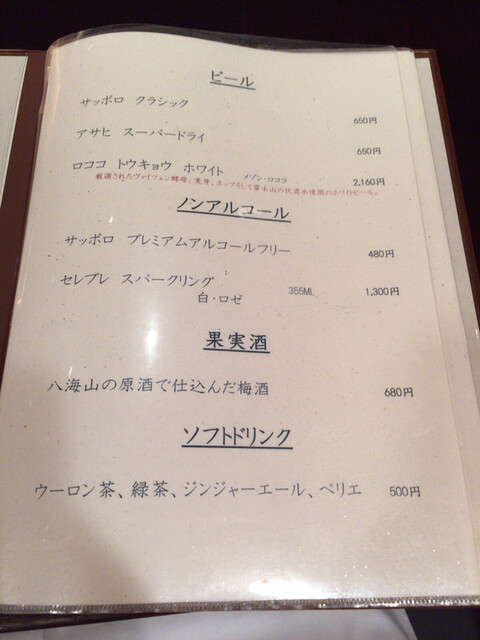 ビール
サッポロ クラシック 650円
アサヒ スーパードライ 650円
ロココ トウキョウ ホワイト メゾン・ロココ 2,160円
厳選されたヴァイツェン酵母、麦芽、ホップそして富士山の伏流水使用のホワイトビール。
ノンアルコール
サッポロ プレミアムアルコールフリー 480円
セレブレ スパークリング
白・ロゼ 355ML 1,300円
果実酒
八海山の原酒で仕込んだ梅酒 680円
ソフトドリンク
ウーロン茶、緑茶、ジンジャーエール、ペリエ 500円